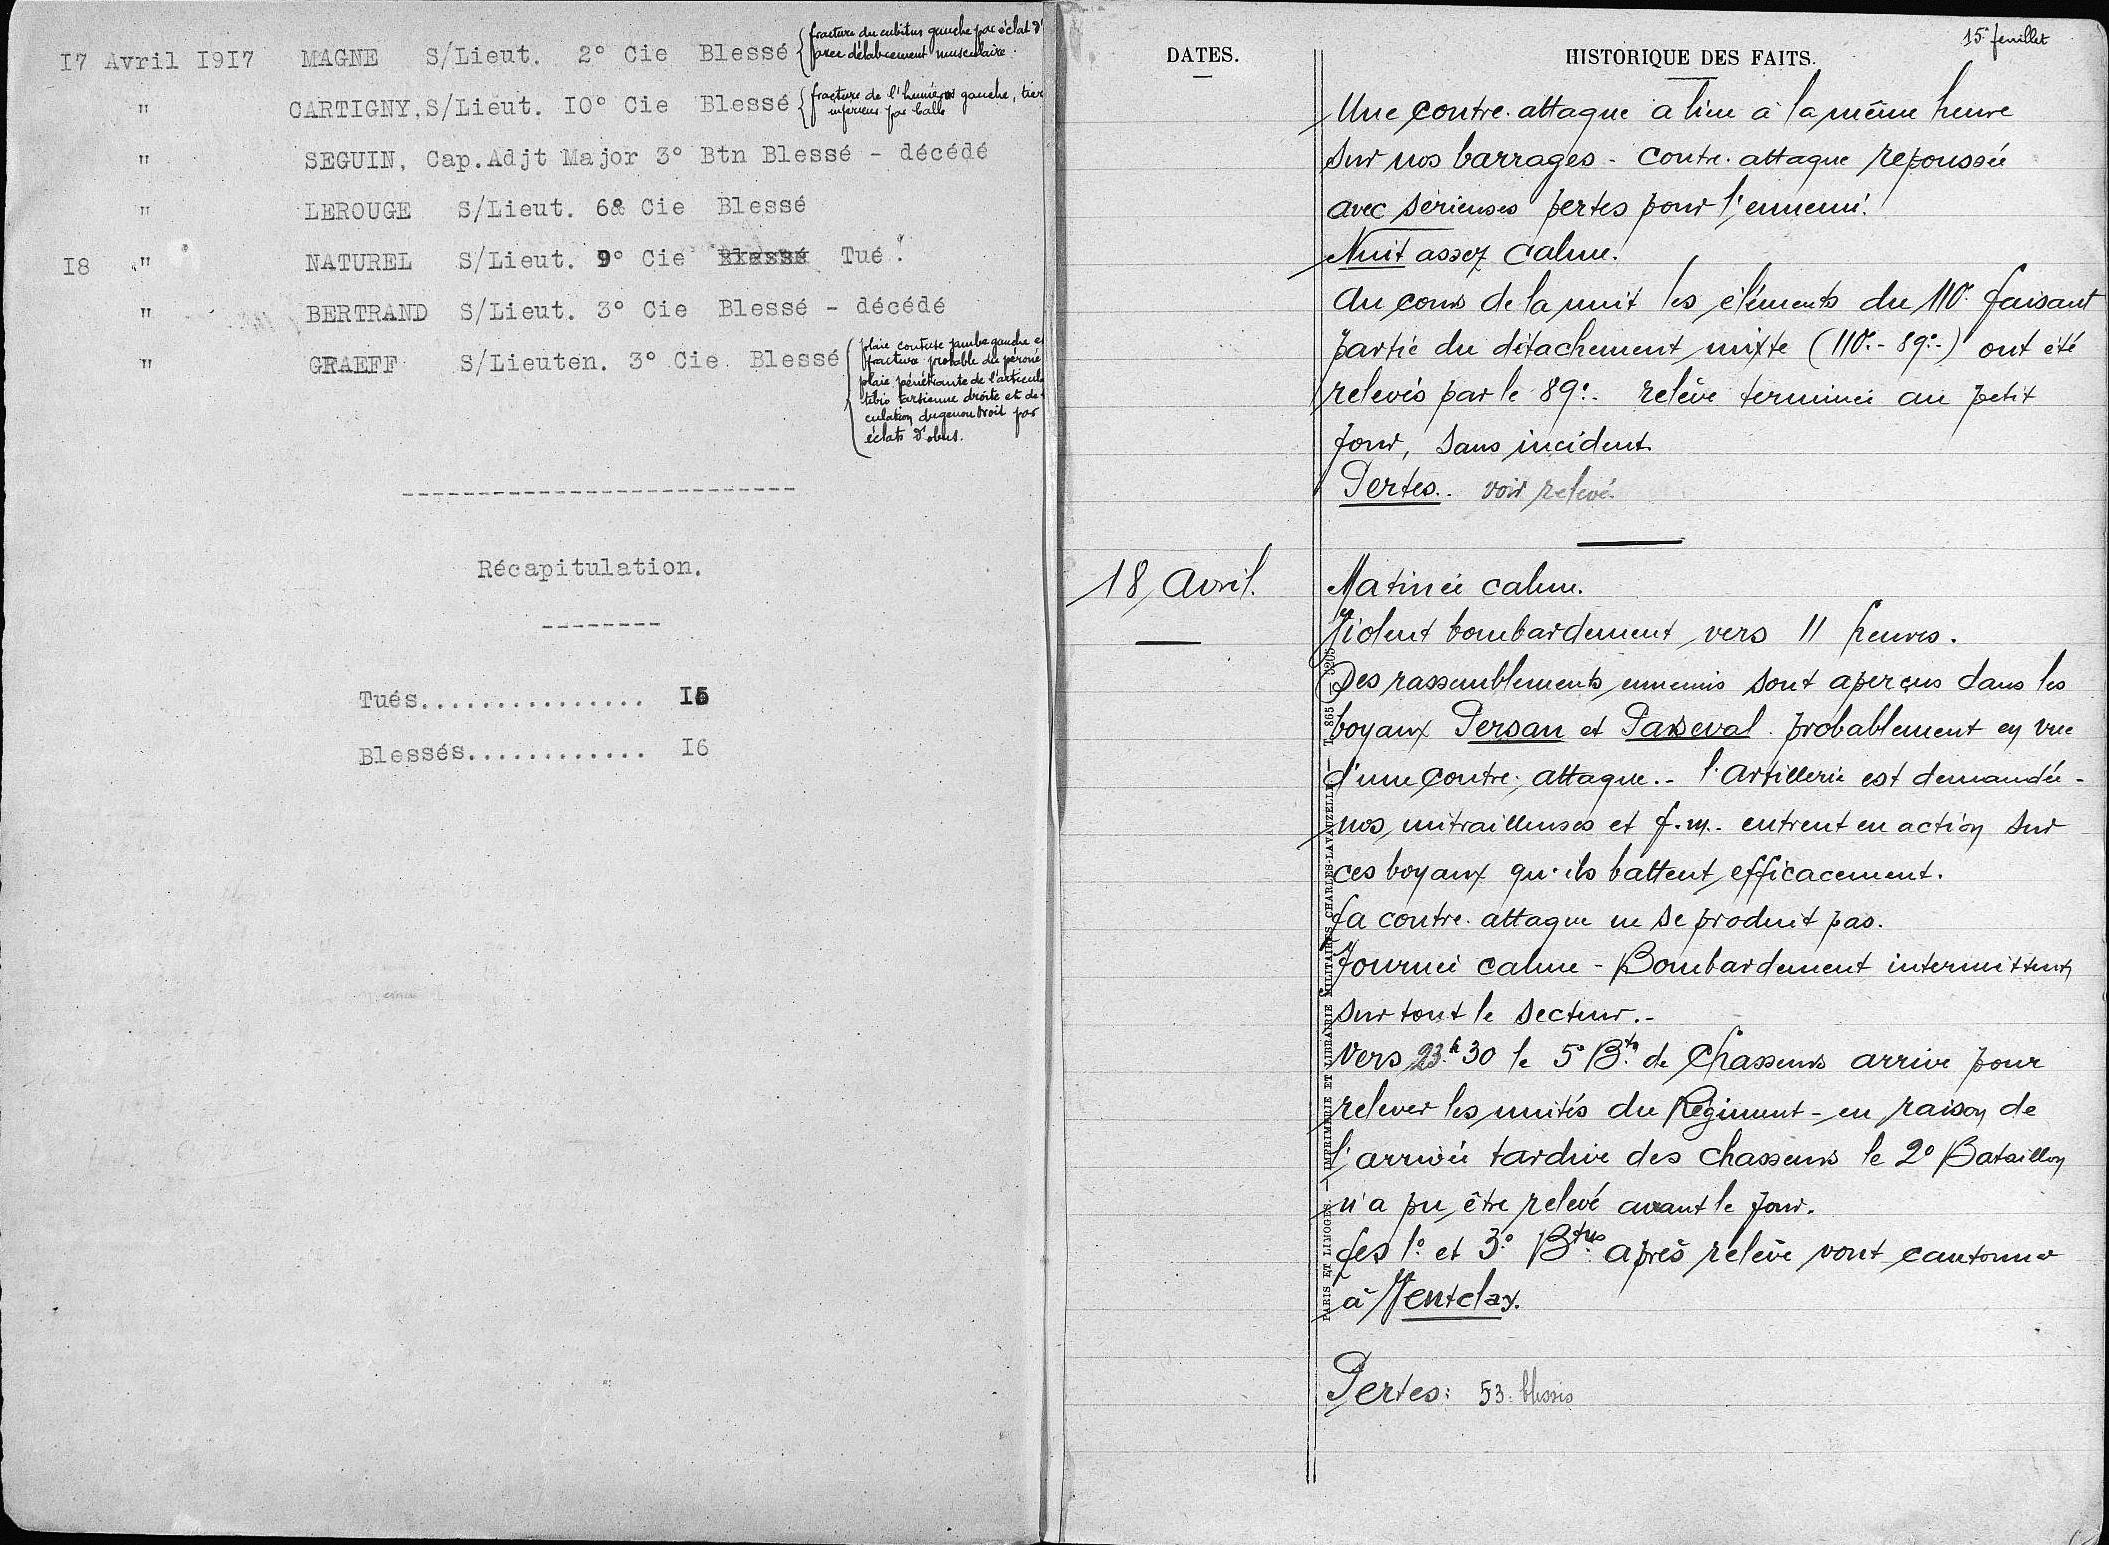 17 Avril 1917 MAGNE S/Lieut. 2° Cie Blessé { fracture du cubitus gauche par éclat d'
avec délabrement musculaire.
" CARTIGNY, S/Lieut. 10° Cie Blessé { fracture de l'humérus gauche, tier
inférieur par balle
" SEGUIN, Cap. Adjt Major 3° Btn Blessé - décédé
" LEROUGE S/Lieut. 6è Cie Blessé
18 " NATUREL S/Lieut. 9° Cie Blessé Tué.
" BERTRAND S/Lieut. 3° Cie Blessé - décédé
" GRAEFF S/Lieuten. 3° Cie Blessé
plaie contuse jambe gauche e
fracture probable du péroné
plaie pénétrante de l'articul
tibio tarsienne droite et de
culation du genou droit par
éclats d'obus.
Récapitulation.
Tués............... 15
Blessés............ 16
15e feuillet
DATES.
HISTORIQUE DES FAITS.
Une contre-attaque a lieu à la même heure
sur nos barrages - contre-attaque repoussée
avec sérieuses pertes pour l'ennemi.
Nuit assez calme.
Au cours de la nuit les éléments du 110e faisant
partie du détachement mixte (110e - 89e -) ont été
relevés par le 89e - relève terminée au petit
jour, sans incident.
Pertes. voir relevé.
18 Avril.
Matinée calme.
Violent bombardement vers 11 heures.
Des rassemblements ennemis sont aperçus dans les
boyaux Persan et Parseval probablement en vue
d'une contre-attaque. - l'artillerie est demandée -
nos mitrailleuses et f.m. entrent en action sur
ces boyaux qu'ils battent efficacement.
La contre-attaque ne se produit pas.
Journée calme - Bombardement intermittent
sur tout le secteur. -
Vers 23h 30 le 5e Btn de Chasseurs arrive pour
relever les unités du Régiment - en raison de
l'arrivée tardive des chasseurs le 2e Bataillon
n'a pu être relevé avant le jour.
Les 1e et 3e Btns après relève vont cantonner
à Ventelay.
Pertes: 53 blessés
PARIS ET LIMOGES. — IMPRIMERIE ET LIBRAIRIE MILITAIRES CHARLES-LAVAUZELLE. —